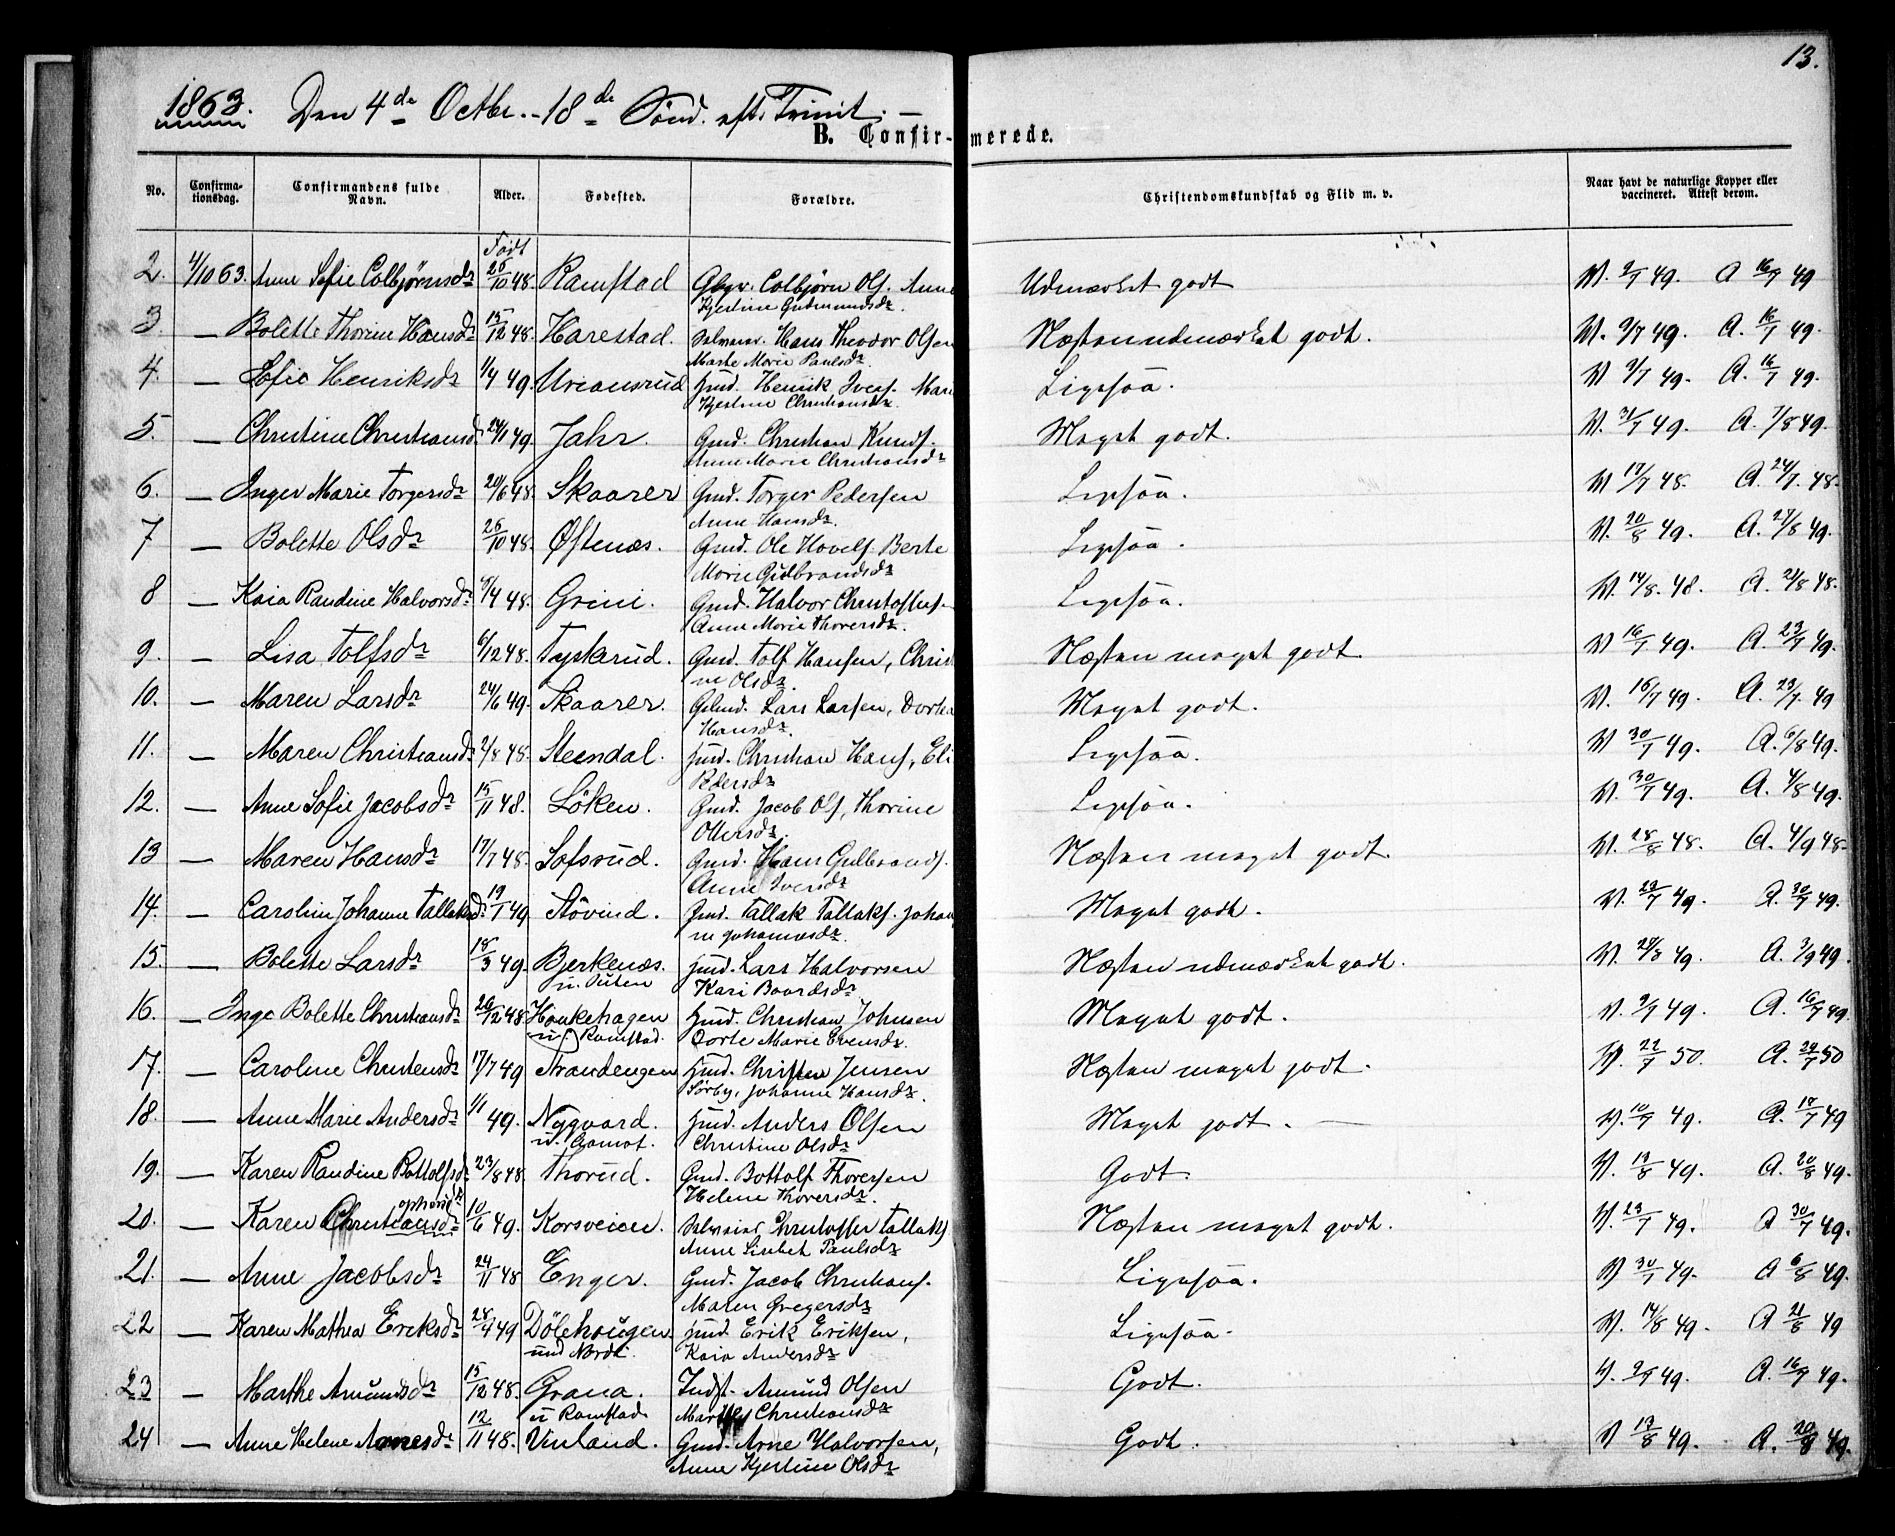 13.
1863. Den 4de Octbr. - 18de Sönd. eft. Trinit. -
B. Confirmerede.
No. Confirmationsdag. Confirmandens fulde Navn. Alder. Fødested. Forældre. Christendomskundskab og Flid m. v. Naar havt de naturlige Kopper eller vaccineret. Attest derom.
Født
2. 4/10 63. Anne Sofie Colbjørnsdr 26/10 48. Ramstad Gbr. Colbjørn Ols. Anne Udmærket godt V. 9/7 49. A 16/7 49
Kjerstine Gudmundsdr.
3 — Bolette Thorine Hansdr 15/12 48. Harestad. Selveier. Hans Theodor Olsen Næsten udmærket godt. V. 9/7 49. A. 16/7 49.
Marte Marie Paulsdr
4. — Sofie Henriksdr 1/4 49. Uriansrud Hmd. Henrik Ivers. Mari Ligesaa. V 9/7 49. A. 16/7 49.
Kjerstine Christiansdr.
5. — Christine Christiansd 24/1 49. Jahr. Gmd. Christian Knuds. Meget godt. V. 31/7 49. A. 7/8 49.
Anne Marie Christiansdr
6. — Inger Marie Torgersdr 20/6 48. Skaarer Gmd. Torger Pedersen Ligesaa. V 17/7 48. A. 24/7. 48.
Anne Hansdr.
7 — Bolette Olsdr 26/10 48. Østenæs. Gmd. Ole Hovels. Berte Ligesaa. V. 20/8 49. A. 27/8 49.
Marie Gulbrandsdr
8 — Kaia Randine Halvorsdr 9/4 48. Grini. Gmd. Halvor Christoffers. Ligesaa. V. 14/8. 48. A. 21/8 48.
Anne Marie Thorersdr.
9. — Lisa Tolfsdr 6/12 48. Tyskerud. Gmd. Tolf Hansen, Christi Næsten meget godt. V 16/7 49. A. 23/7 49.
ne Olsdr.
10. — Maren Larsdr 24/6 49. Skaarer. Gmd. Lars Larsen, Dortea Meget godt. V. 16/7 49. A. 23/7. 49
Hansdr.
11. — Maren Christiansdr 2/8 48. Steendal. Hmd. Christian Hans., Eli Ligesaa. V 30/7 49. A. 6/8 49.
Pedersdr
12. — Anne Sofie Jacobsdr 15/11 48. Löken. Gmd. Jacob Ols, Thorine Ligesaa. V. 30/7 49. A. 4/8 49.
Ottersdr.
13 — Maren Hansdr 17/7 48. Sofsrud. Gmd. Hans Gulbrands. Næsten meget godt. V. 28/8 48. A. 4/9 48.
Anne Iversdr
14. — Caroline Johanne Tallaksdr. 19/1 49 Stövind. Gmd. Tallak Tallaks. Johan Meget godt. V. 23/7 49. A. 30/7 49.
ne Johannesdr.
15. — Bolette Larsdr 18/3 49. Bjerkenæs. Hmd. Lars Halvorsen Næsten udmærket godt. V. 28/8 49. A. 3/9 49.
u. Kari Baardsdr
16. — Inge Bolette Christiansdr 26/12 48. Haukehagen Hmd. Christian Johnsen Meget godt. V. 9/7 49. A. 16/7 49.
u. Ramstad. Dorte Marie Evensdr.
17. — Caroline Christensdr 17/7 49 Strandengen Hmd. Christen Jensen Næsten meget godt. V. 22/7 50. A. 29/7 50
Sörby, Johanne Hansdr.
18. — Anne Marie Andersdr 1/1 49. Nygaard. Hmd. Anders Olsen Meget godt. — V. 10/7 49. A. 17/7 49
u. Christine Olsdr
19. — Karen Randine Bottolfsdr 23/8 48. Thorud. Gmd. Bottolf Thoresen Godt. V. 13/8 49. A. 20/8 49.
Helene Thorersdr.
20. — Karen Christiansdr 10/6 49. Korsveien. Selveier Christoffer Tallaks. Næsten meget godt. V. 23/7 49. A 30/7 49.
Anne Lisebet Paulsdr
21. — Anne Jacobsdr 24/11 48 Enger. Gmd. Jacob Christians. Ligesaa. V 30/7 49. A 6/8 49.
Maren Gregersdr
22 — Karen Mathea Eriksdr 28/4 49 Dölehaugen Hmd. Erik Eriksen, Ligesaa. V. 14/8 49. A 21/8 49
und Nordli Kaia Andersdr
23 — Marthe Amundsdr 15/12 48. Grana. Indst. Amund Olsen Godt. V. 9/7 49. A. 16/7 49.
u Ramstad Marthe Christiansdr
24 — Anne Helene Arnesdr 12/11 48. Vinland. Gmd. Arne Halvorsen, Godt. V 13/8 49. A. 20/8 49.
Anne Kjerstine Olsdr